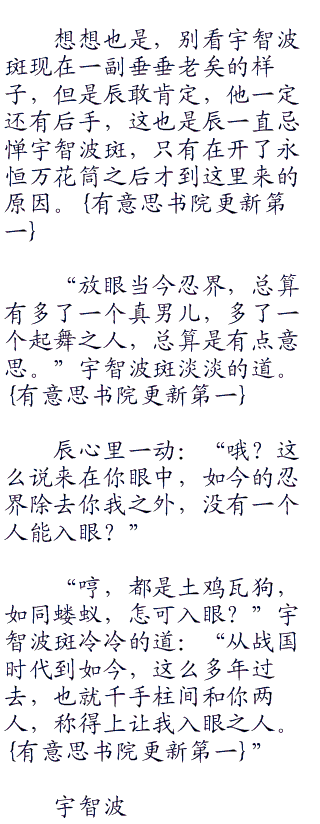 想想也是，别看宇智波
斑现在一副垂垂老矣的样
子，但是辰敢肯定，他一定
还有后手，这也是辰一直忌
惮宇智波斑，只有在开了永
恒万花筒之后才到这里来的
原因。{有意思书院更新第
一}
“放眼当今忍界，总算
有多了一个真男儿，多了一
个起舞之人，总算是有点意
思。”宇智波斑淡淡的道。
{有意思书院更新第一}
辰心里一动：“哦？这
么说来在你眼中，如今的忍
界除去你我之外，没有一个
人能入眼？”
“哼，都是土鸡瓦狗，
如同蝼蚁，怎可入眼？”宇
智波斑冷冷的道：“从战国
时代到如今，这么多年过
去，也就千手柱间和你两
人，称得上让我入眼之人。
{有意思书院更新第一}”
宇智波